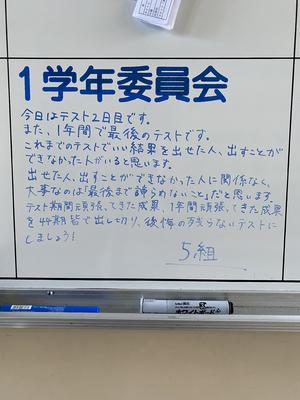 1学年委員会
今日はテスト2日目です。
また、1年間で最後のテストです。
これまでのテストでいい結果を出せた人、出すことが
できなかった人がいると思います。
出せた人、出すことができなかった人に関係なく、
大事なのは「最後まで諦らめないこと」だと思います。
テスト期間頑張ってきた成果、1年間頑張ってきた成果
を44期皆で出し切り、後悔の残らないテストに
しましょう!
5組
ホワイトボード